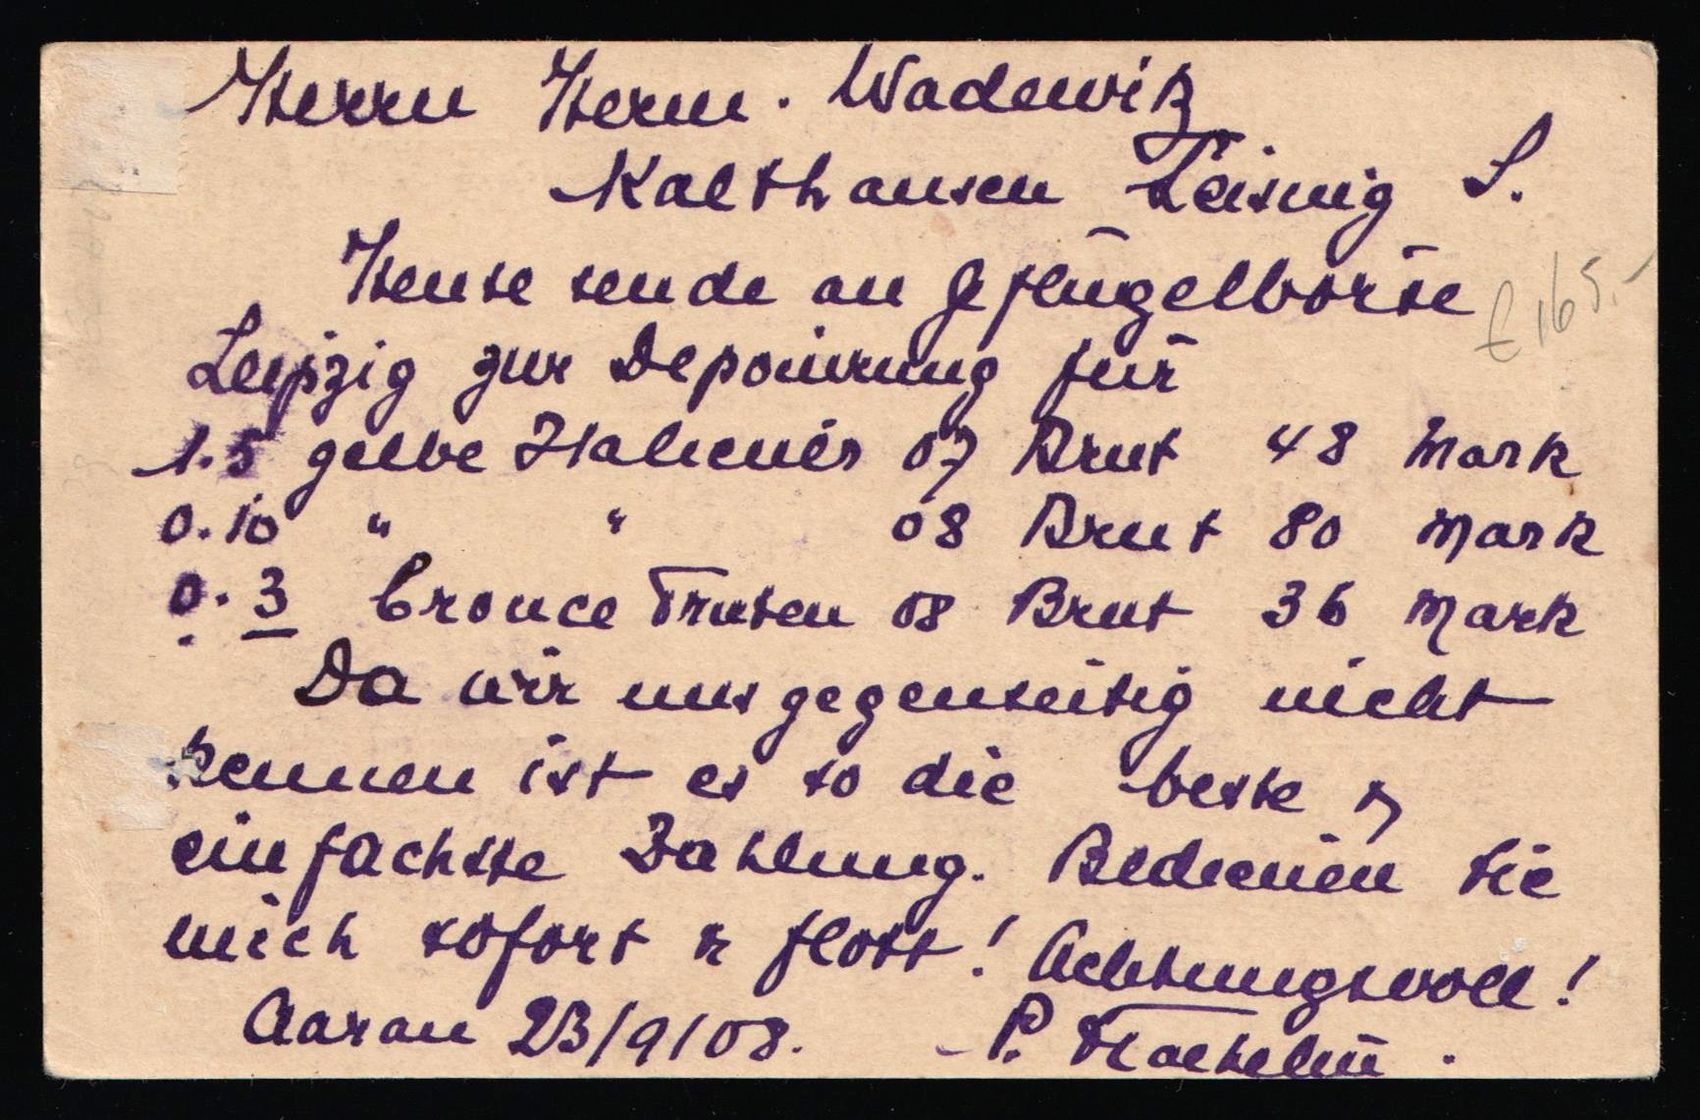 Herrn Herm. Wadewitz
Kalthausen Leisnig S.
Heute sende an Gflügelbörse
Leipzig zur Deponirung für
1.5 gelbe Italiener 07 Brut 48 Mark
0.10 " " 08 Brut 80 Mark
0.3 bronce Truten 08 Brut 36 Mark
Da wir uns gegenseitig nicht
kennen ist es so die beste &
einfachste Zahlung. Bedienen Sie
mich sofort & flott! Achtungsvoll!
Aarau 23/9/08. P. Staehelin.
£165.-